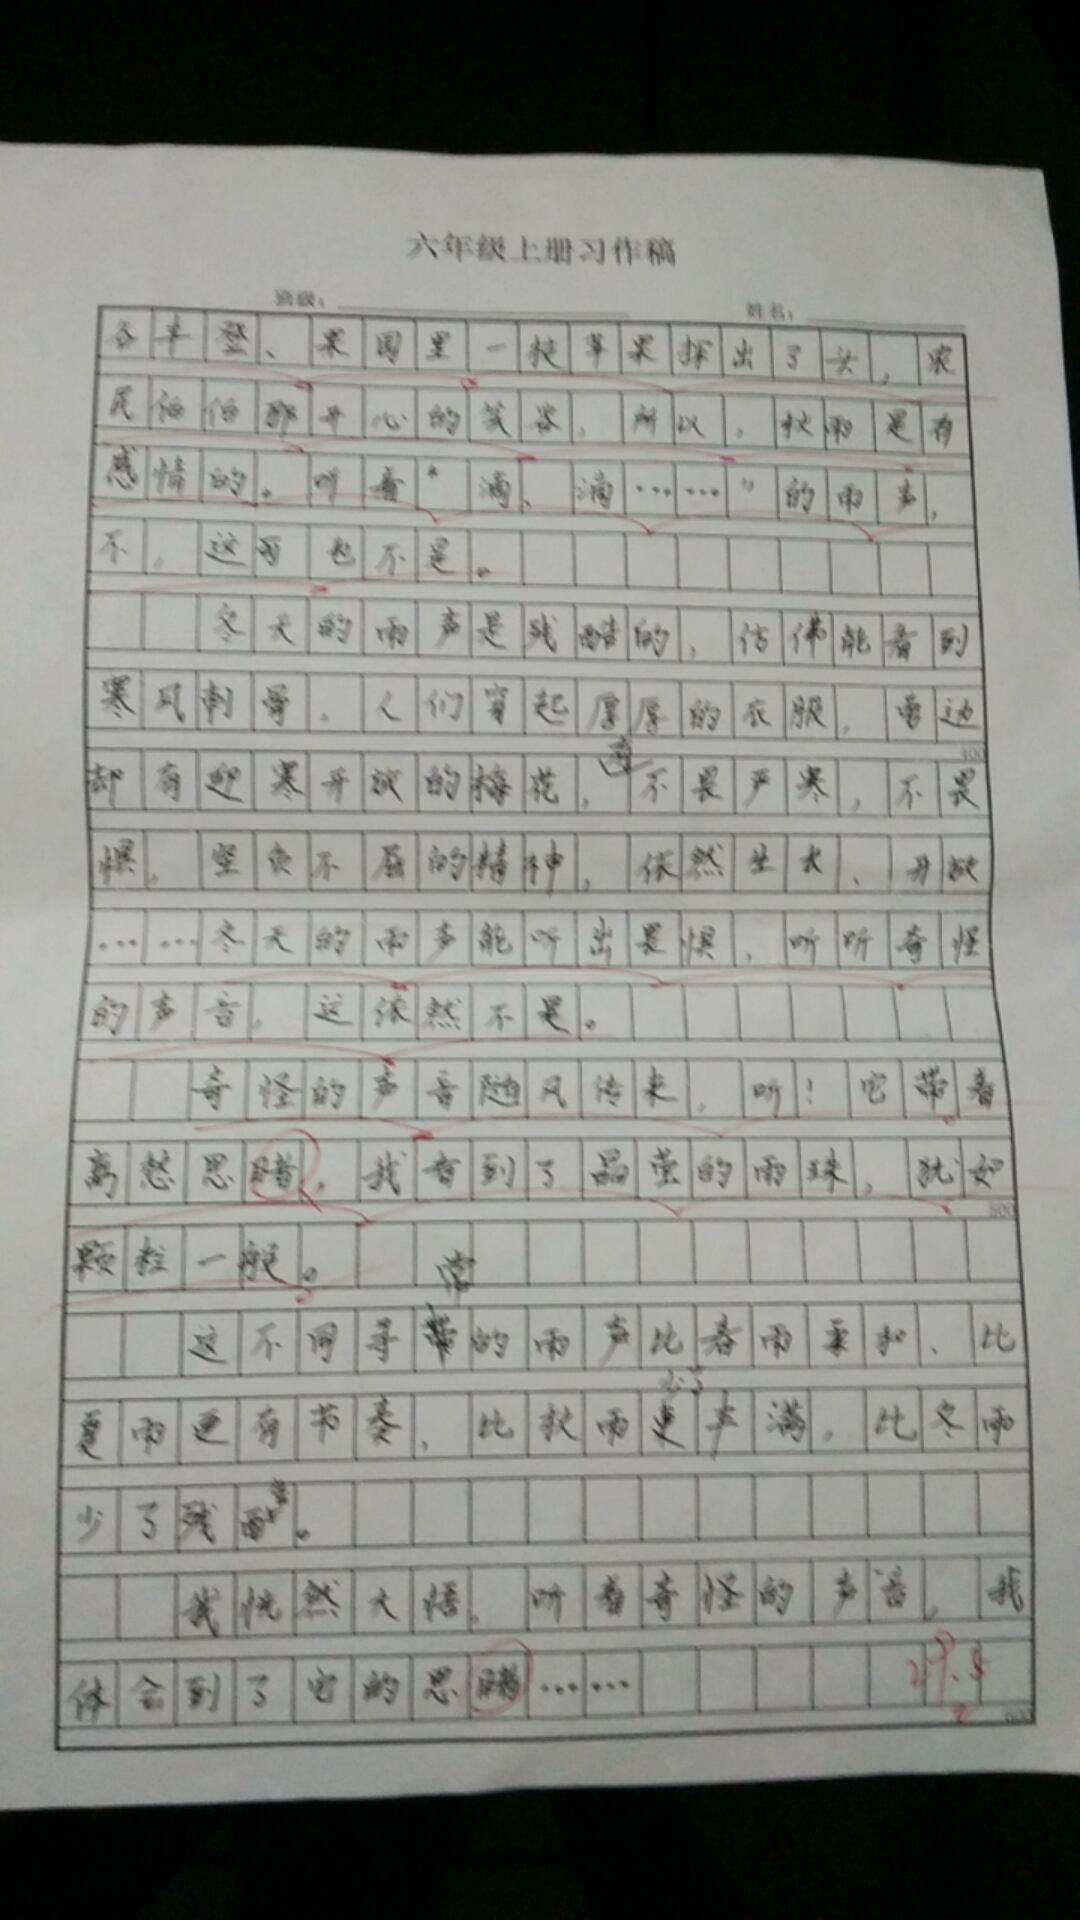 六年级上册习作稿
班级： 姓名：
丰登、果园里一挺苹果探出了头，农
民伯伯那开心的笑容，所以，秋雨是有
感情的。听着“滴、滴……”的雨声，
不，这可也不是。
冬天的雨声是残酷的，仿佛能看到
寒风刺骨，人们穿起厚厚的衣服，雪边
400
却有迎寒开放的梅花，不畏严寒，不畏
惧，坚贞不屈的精神，依然生长、开放
……冬天的雨声能听出畏惧，听听奇怪
的声音，这依然不是。
奇怪的声音随风传来，听！它带着
离愁思，我看到了晶莹的雨珠，犹如
500
颗粒一般。
这不同寻常的雨声比春雨柔和、比
夏雨更有节奏，比秋雨少了丰满，比冬雨
少了残酷。
我恍然大悟，听着奇怪的声音，我
体会到了它的思……
29.5
600